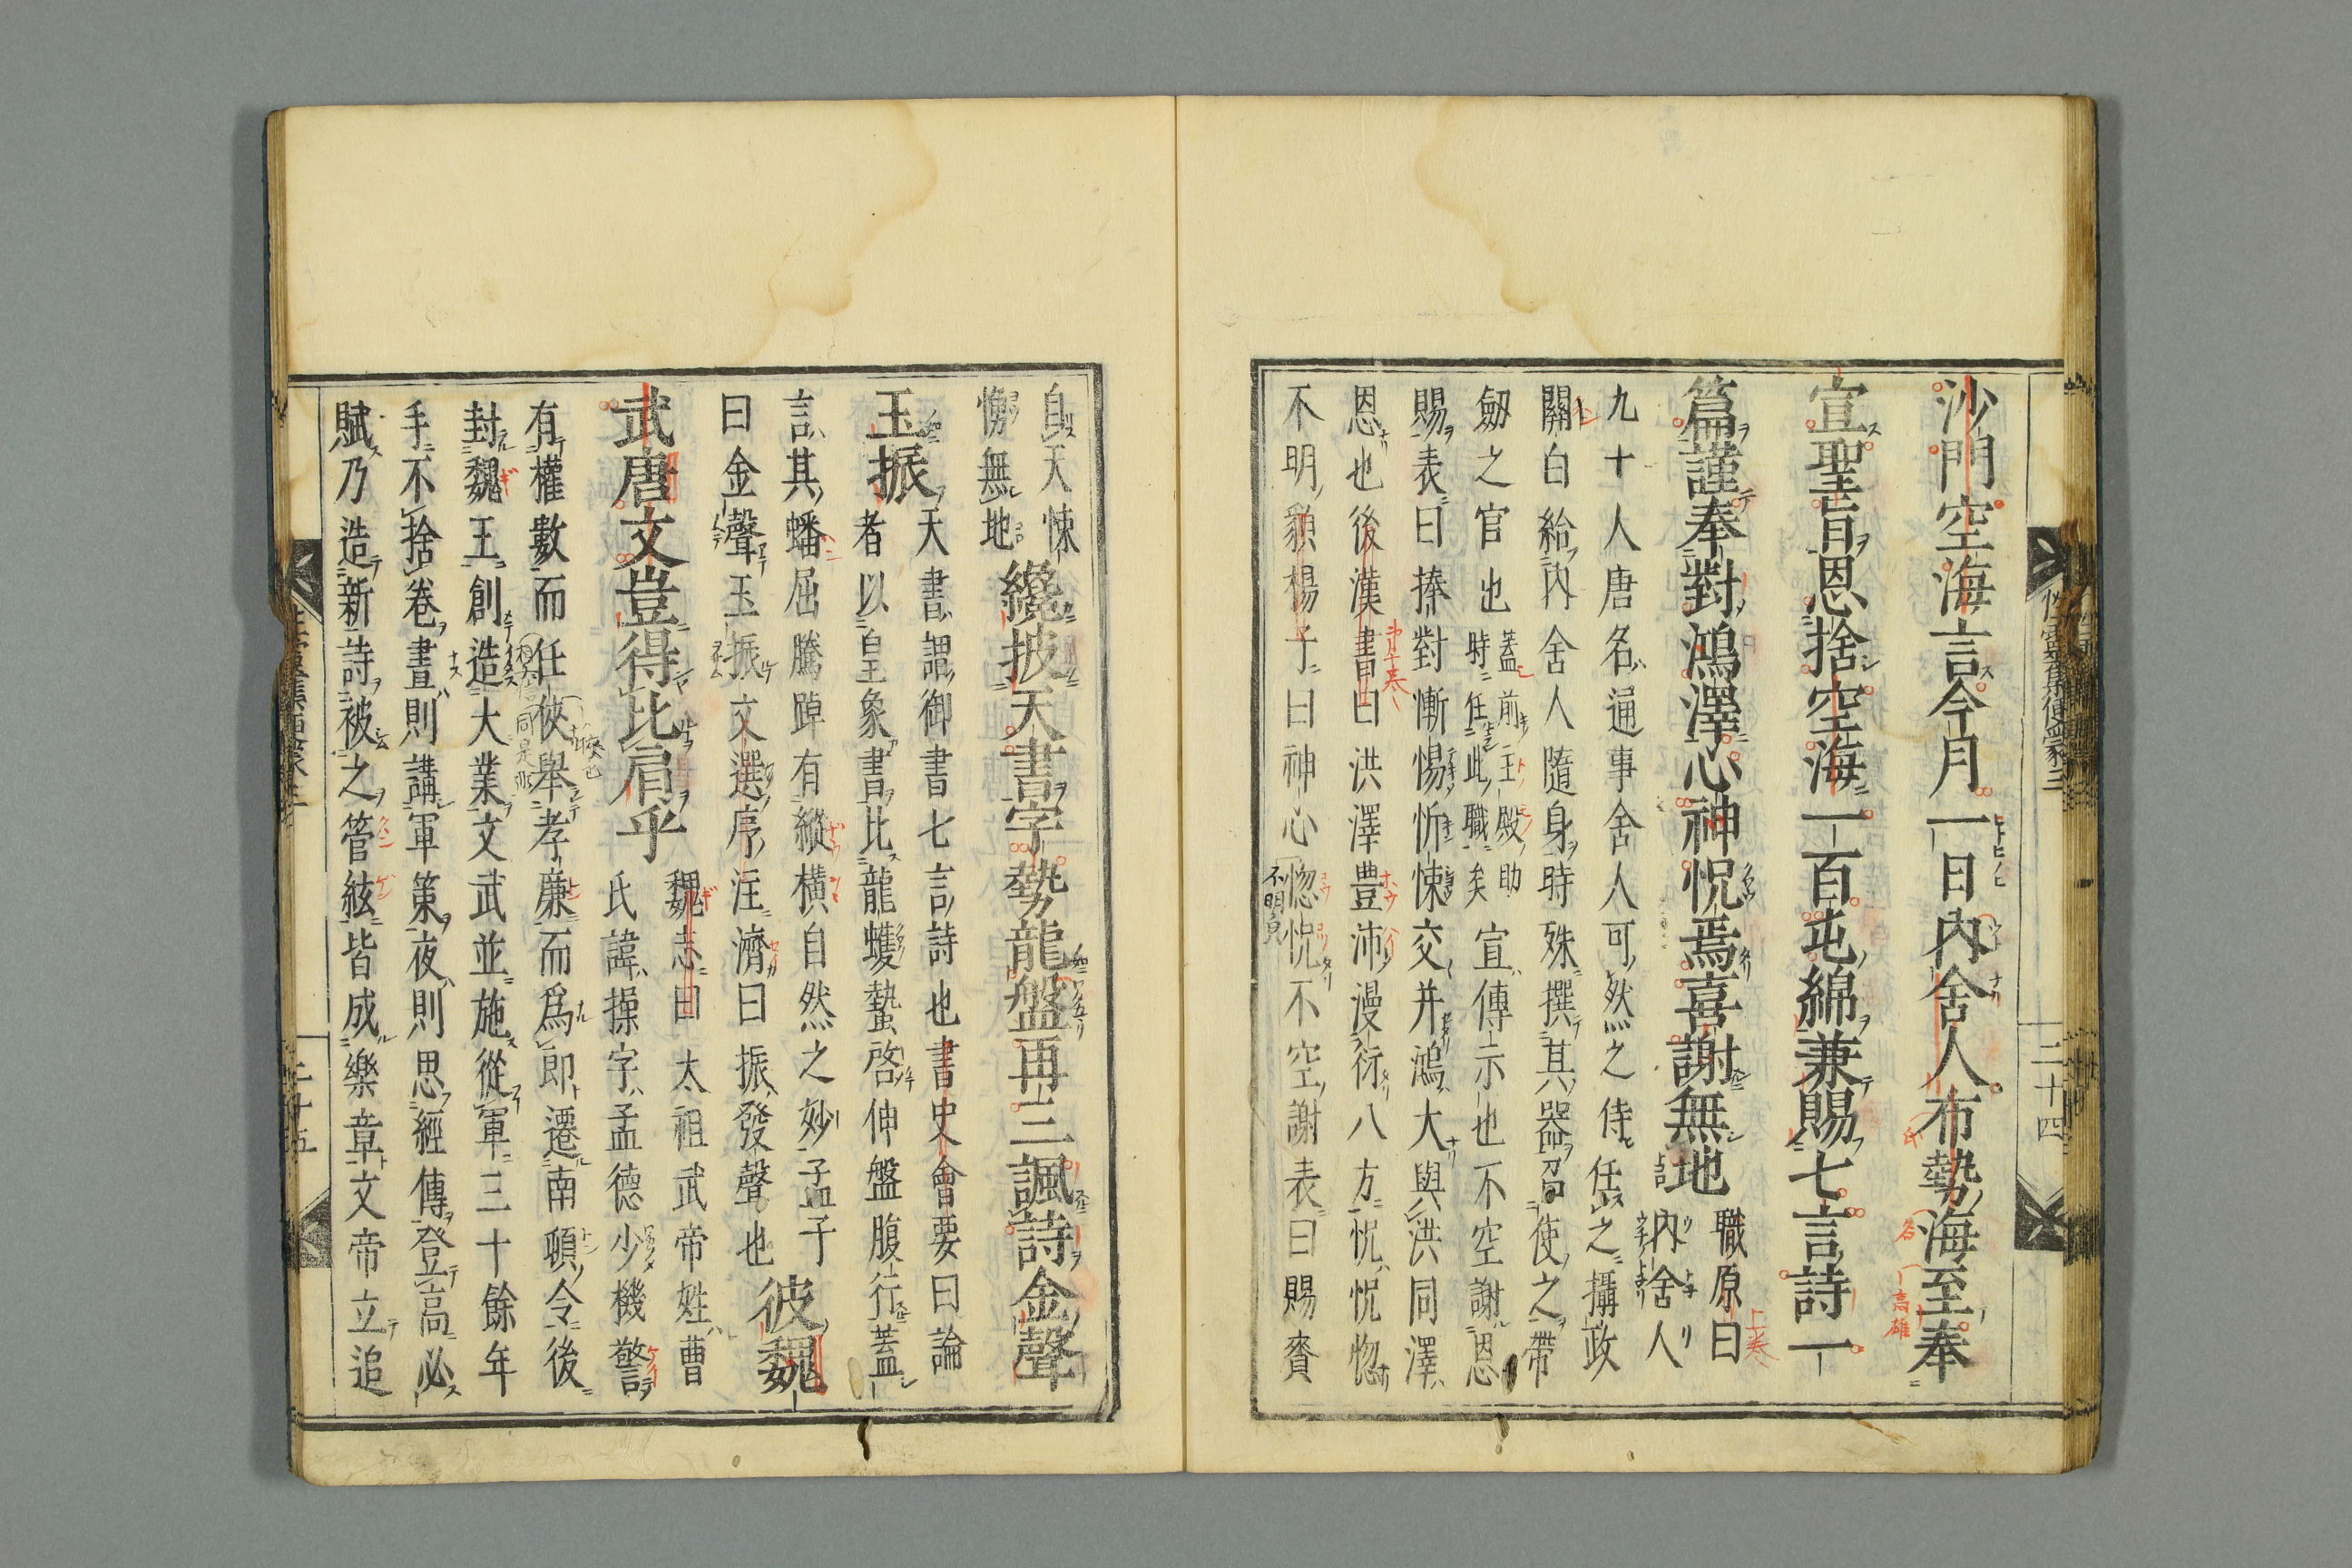 沙門空海言今月一日内舍人布勢海至奉
宣聖旨恩捨空海一百屯綿兼賜七言詩一
篇謹奉對鴻澤心神怳焉喜謝無地
職原曰
内舍人
九十人唐名通事舍人可然之侍任之攝政
關白給内舍人隨身時殊撰其器召使之帶
劒之官也
蓋前主殿助
時任此職矣
宣傳示也不空謝恩
賜表曰捧對慚惕忻悚交并鴻大與洪同澤
恩也後漢書曰洪澤豊沛漫衍八方怳怳惚
不明貌楊子曰神心惚怳不空謝表曰賜賚
性靈集便蒙三
二十四
自天悚
慚無地
纔披天書字勢龍盤再三諷詩金聲
玉振
天書謂御書七言詩也書史會要曰論
者以皇象書比龍蠖蟄啓伸盤腹行蓋
言其蟠屈騰踔有縱橫自然之妙孟子
曰金聲玉振文選序注濟曰振發聲也
彼魏
武唐文豈得比肩乎
魏志曰太祖武帝姓曹
氏諱操字孟德少機警
有權數而任俠舉孝廉而爲郎遷南頓令後
封魏王創造大業文武並施從軍三十餘年
手不捨卷晝則講軍策夜則思經傳登高必
賦乃造新詩被之管絃皆成樂章文帝立追
二十五